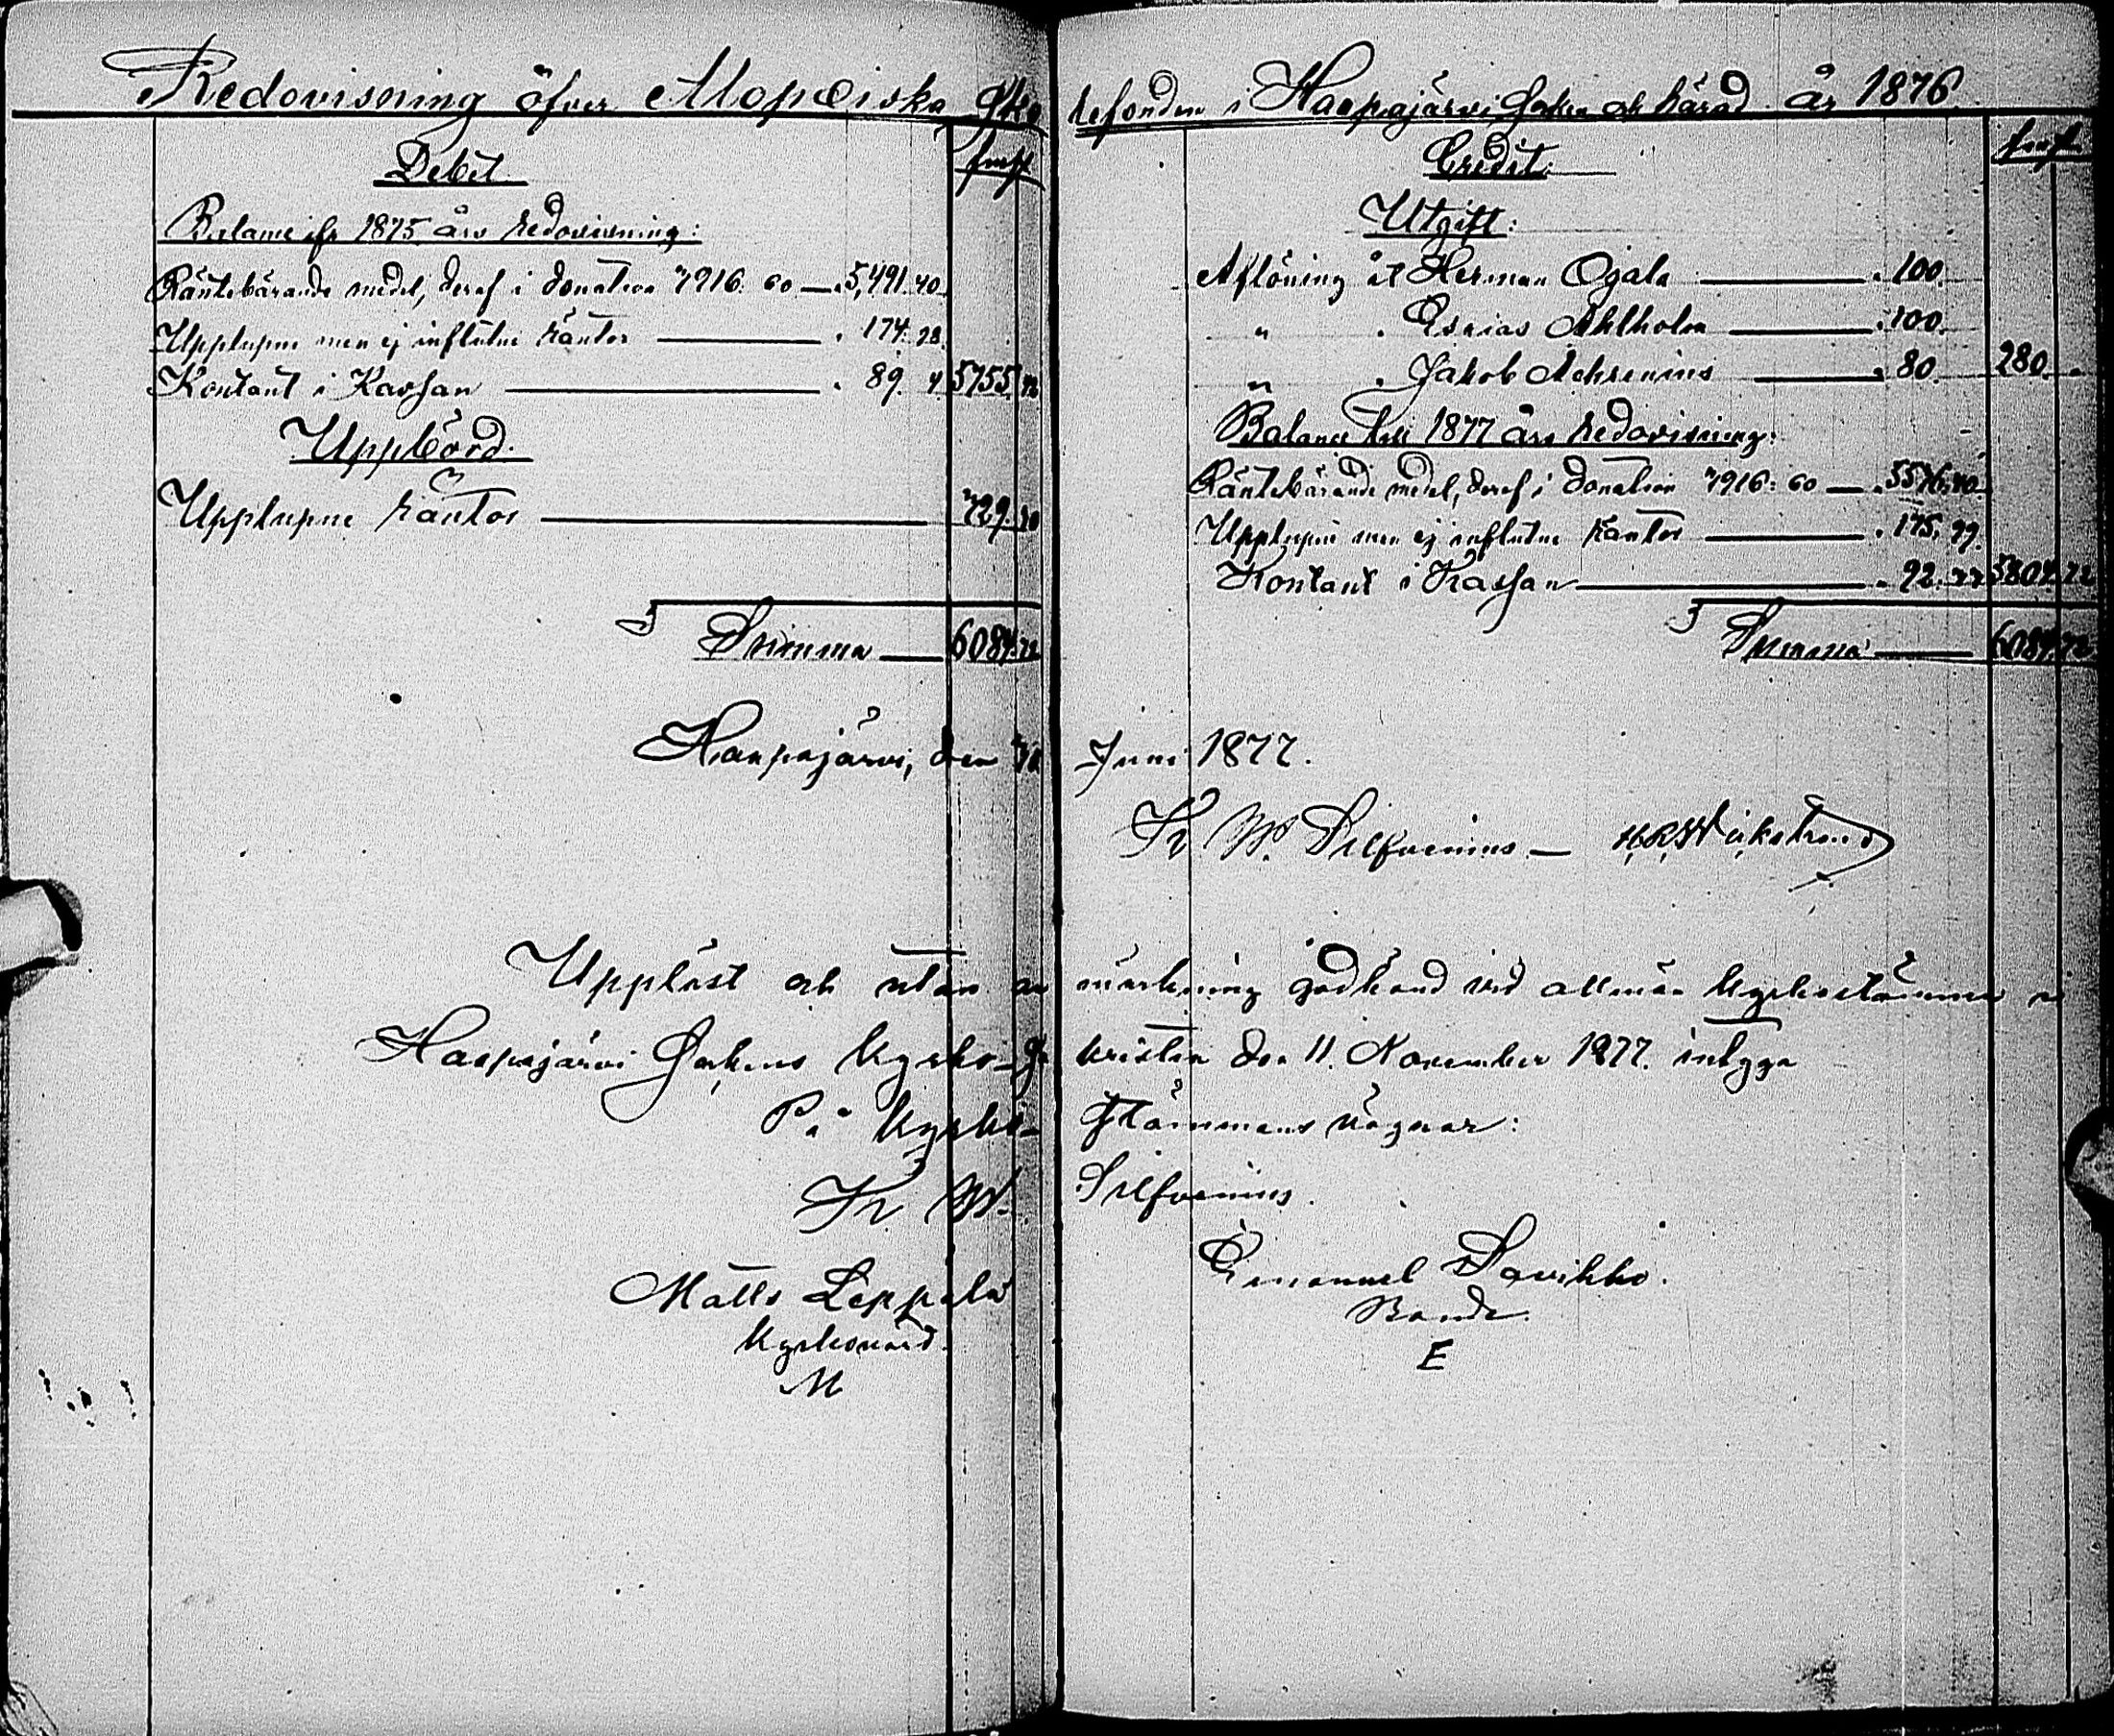 Redovisning öfver Mopæiska Sko
Debet.
Balance ifr 1875 års redovisning:
Räntebärande medel, deraf i donation 7916: 60 — 5,491. 40
Upplupne men ej influtne räntor — 174. 28.
Kontant i Kassan — 89. 4 5755. 72
Uppbörd.
Upplupne räntor — 329.
Summa — 6084. 72
Haapajärvi, den
Uppläst och utan an
Haapajärvi Sokens Kyrko-Sa
På Kyrko-
Kr W.
Matts Leppälä
Kyrkovärd.
M
lefonden i Haapajärvi Socken och härad år 1876.
Credit:
Utgift:
Aflöning åt Herman Ojala — 100.
" " Esaias Ahlholm — 100.
" " Jakob Achrenius — 80. 280.
Balance till 1877 års redovisning:
Räntebärande medel, deraf i donation 7916: 60 — 5536: 40
Upplupne men ej influtne räntor — 175, 99.
Kontant i Kassan — 92. 33 5804. 72
Summa — 6084. 72
Juni 1877.
Kr W. Silfvenius — H. R. Wickström
märkning godkänd vid allmän Kyrkostämma i
kristia den 11. November 1877. intyga
Stämmans vägnar:
Silfvenius.
Emanuel Savikko.
Bonde.
E